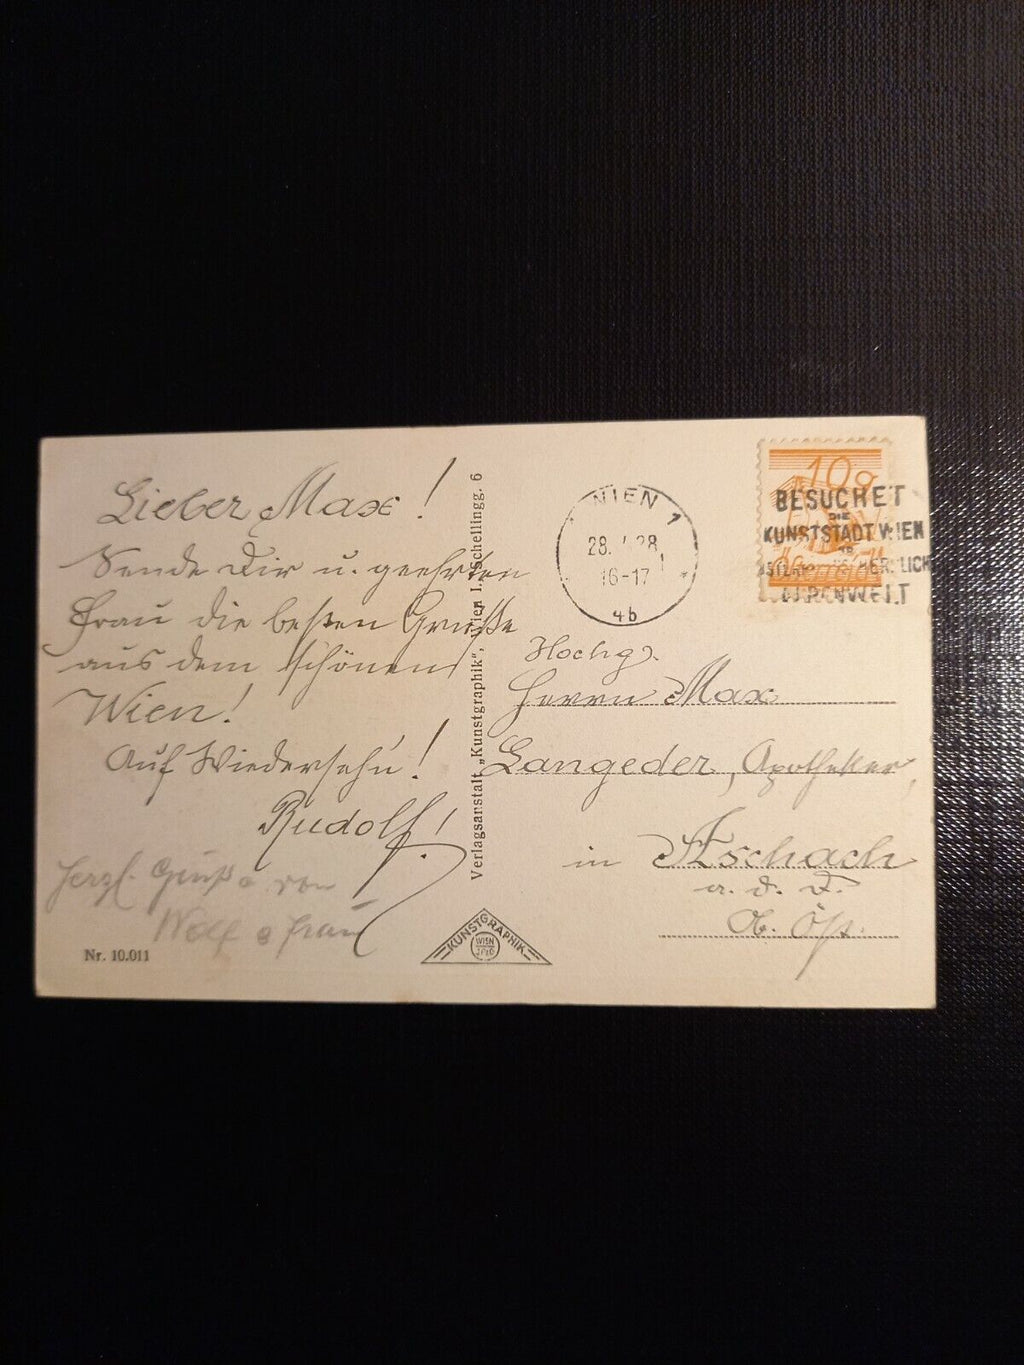 Lieber Max!
Sende Dir u. geehrten
Frau die besten Grüße
aus dem schönen
Wien!
Auf Wiedersehn!
Rudolf!
Herzl. Grüße von
Wolf & Frau
Nr. 10.011
Verlagsanstalt „Kunstgraphik", Wien I., Schellingg. 6
KUNSTGRAPHIK
WIEN
WIEN 1
28. 28
16-17
4b
10g
BESUCHET
DIE
KUNSTSTADT WIEN
Österreich
Hochg.
Herrn Max
Langeder, Apotheker,
in Aschach
a. d. D.
Ob. Öst.